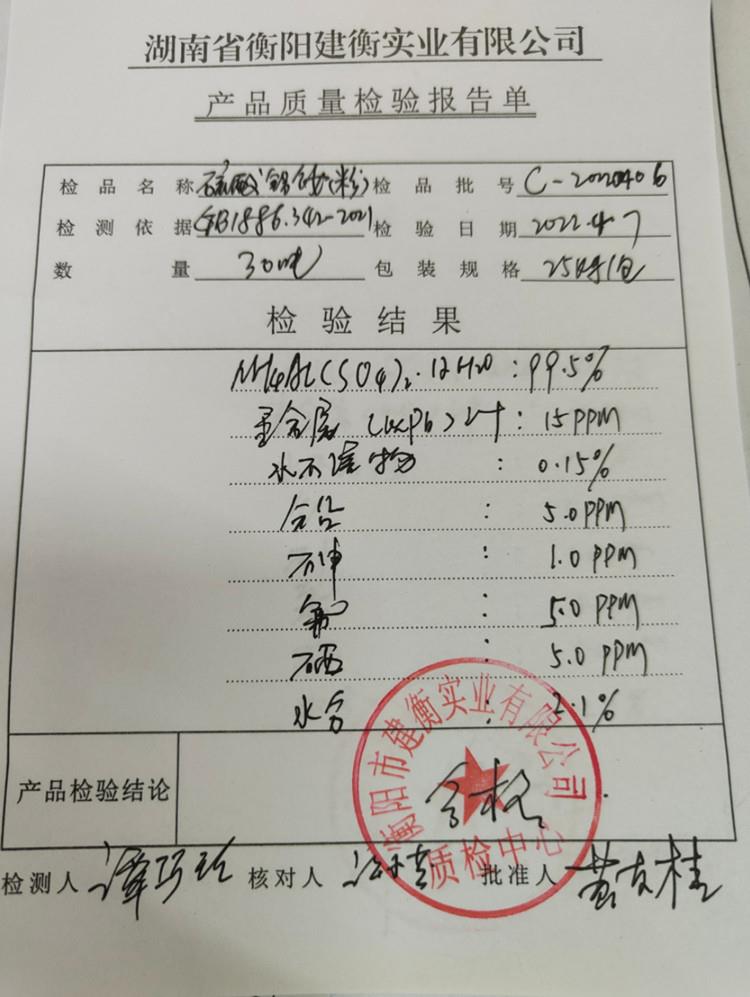 湖南省衡阳建衡实业有限公司
产品质量检验报告单
检品名称 硫酸铝铵(粉) 检品批号 C-20220406
检测依据 GB1886.342-2021 检验日期 2022.4.7
数量 30吨 包装规格 25kg/包
检验结果
NH4AL(SO4)2.12H2O : 99.5%
重金属(以Pb)计 : 15PPM
水不溶物 : 0.15%
铅 : 5.0PPM
砷 : 1.0 PPM
氟 : 5.0 PPM
硒 : 5.0 PPM
水分 : 2.1%
产品检验结论 合格
衡阳市建衡实业有限公司
质检中心
检测人 核对人 批准人 黄友桂